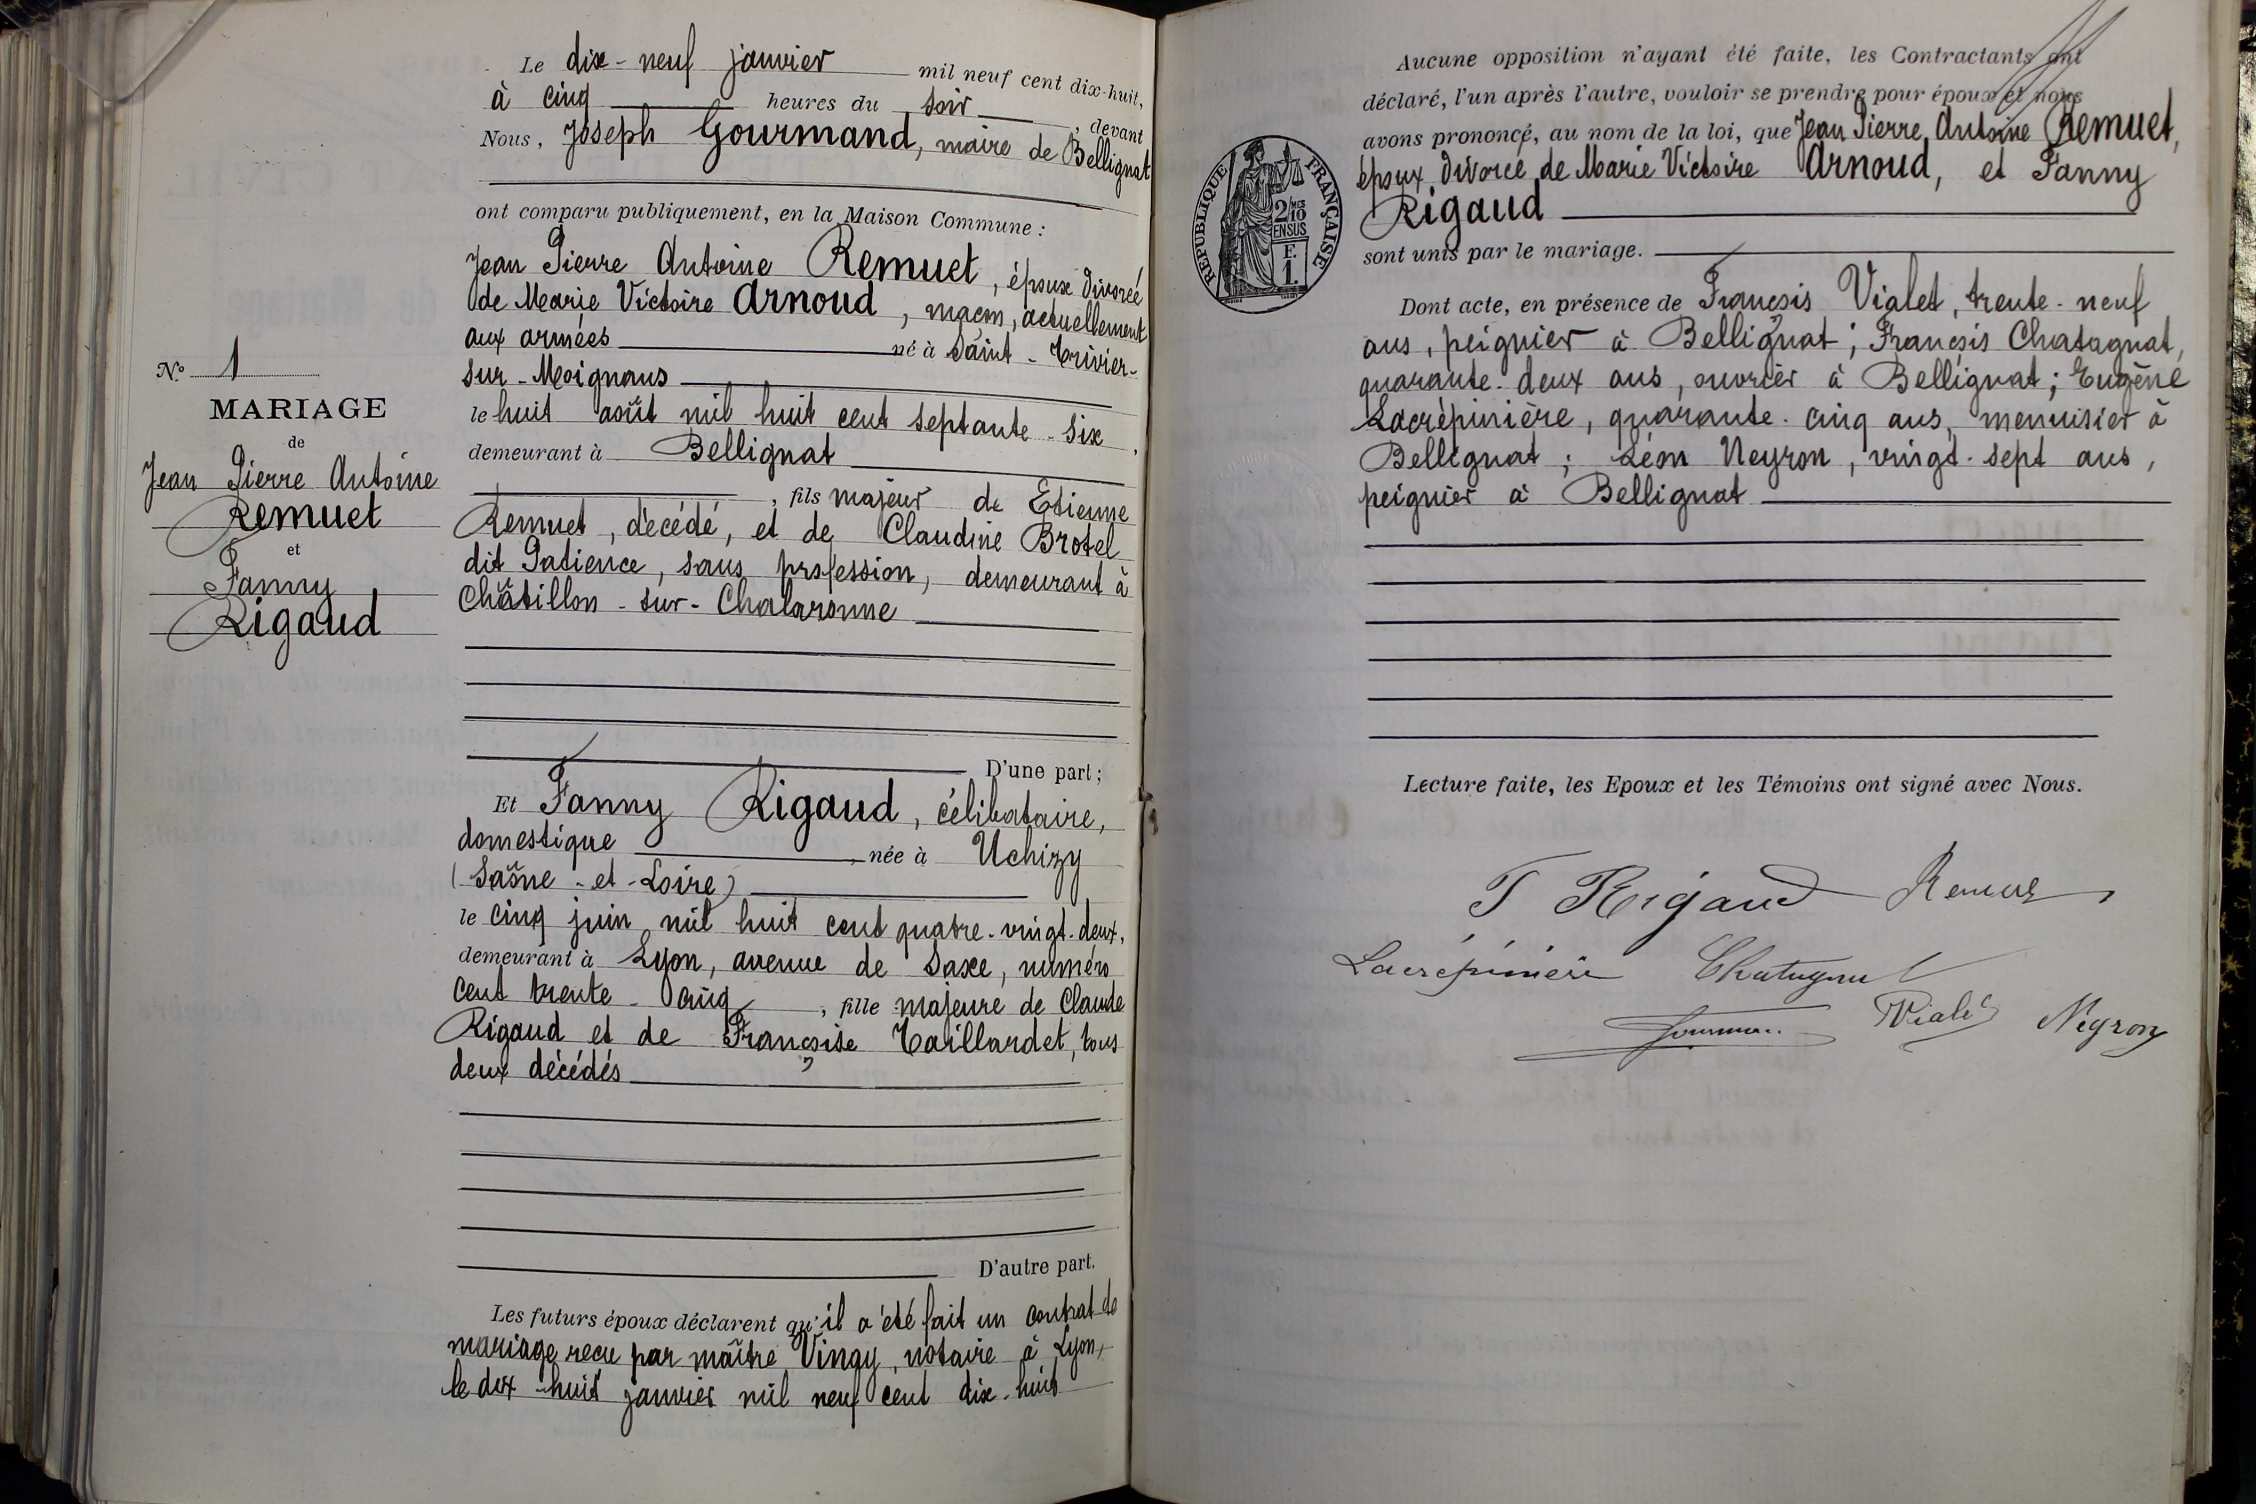 Le dix-neuf janvier mil neuf cent dix-huit,
à cinq heures du soir, devant
Nous, Joseph Gourmand, maire de Bellignat
ont comparu publiquement, en la Maison Commune :
Jean Pierre Antoine Remuet, époux divorcé
de Marie Victoire Arnoud, maçon, actuellement
aux armées né à Saint-Trivier-
sur-Moignans
le huit août mil huit cent septante-six,
demeurant à Bellignat
, fils majeur de Etienne
Remuet, décédé, et de Claudine Brotel
dit Patience, sans profession, demeurant à
Châtillon-sur-Chalaronne
D'une part ;
N° 1
MARIAGE
de
Jean Pierre Antoine
Remuet
et
Fanny
Rigaud
Et Fanny Rigaud, célibataire,
domestique, née à Uchizy
(Saône-et-Loire)
le cinq juin mil huit cent quatre-vingt-deux,
demeurant à Lyon, avenue de Saxe, numéro
cent trente-cinq, fille majeure de Claude
Rigaud et de Françoise Taillardet, tous
deux décédés
D'autre part.
Les futurs époux déclarent qu'il a été fait un contrat de
mariage reçu par maître Vingy, notaire à Lyon,
le dix-huit janvier mil neuf cent dix-huit
Aucune opposition n'ayant été faite, les Contractants ont
déclaré, l'un après l'autre, vouloir se prendre pour époux et nous
avons prononcé, au nom de la loi, que Jean Pierre Antoine Remuet,
époux divorcé de Marie Victoire Arnoud, et Fanny
Rigaud
sont unis par le mariage.
REPUBLIQUE FRANÇAISE
2/10 MES
EN SUS
F.
1.
Dont acte, en présence de François Vialet, trente-neuf
ans, peignier à Bellignat ; François Chatagnat,
quarante-deux ans, ouvrier à Bellignat ; Eugène
Lacrépinière, quarante-cinq ans, menuisier à
Bellignat ; Léon Neyron, vingt-sept ans,
peignier à Bellignat
Lecture faite, les Epoux et les Témoins ont signé avec Nous.
F Rigaud Remuet
Lacrépinière Chatagnat
Vialet Neyron